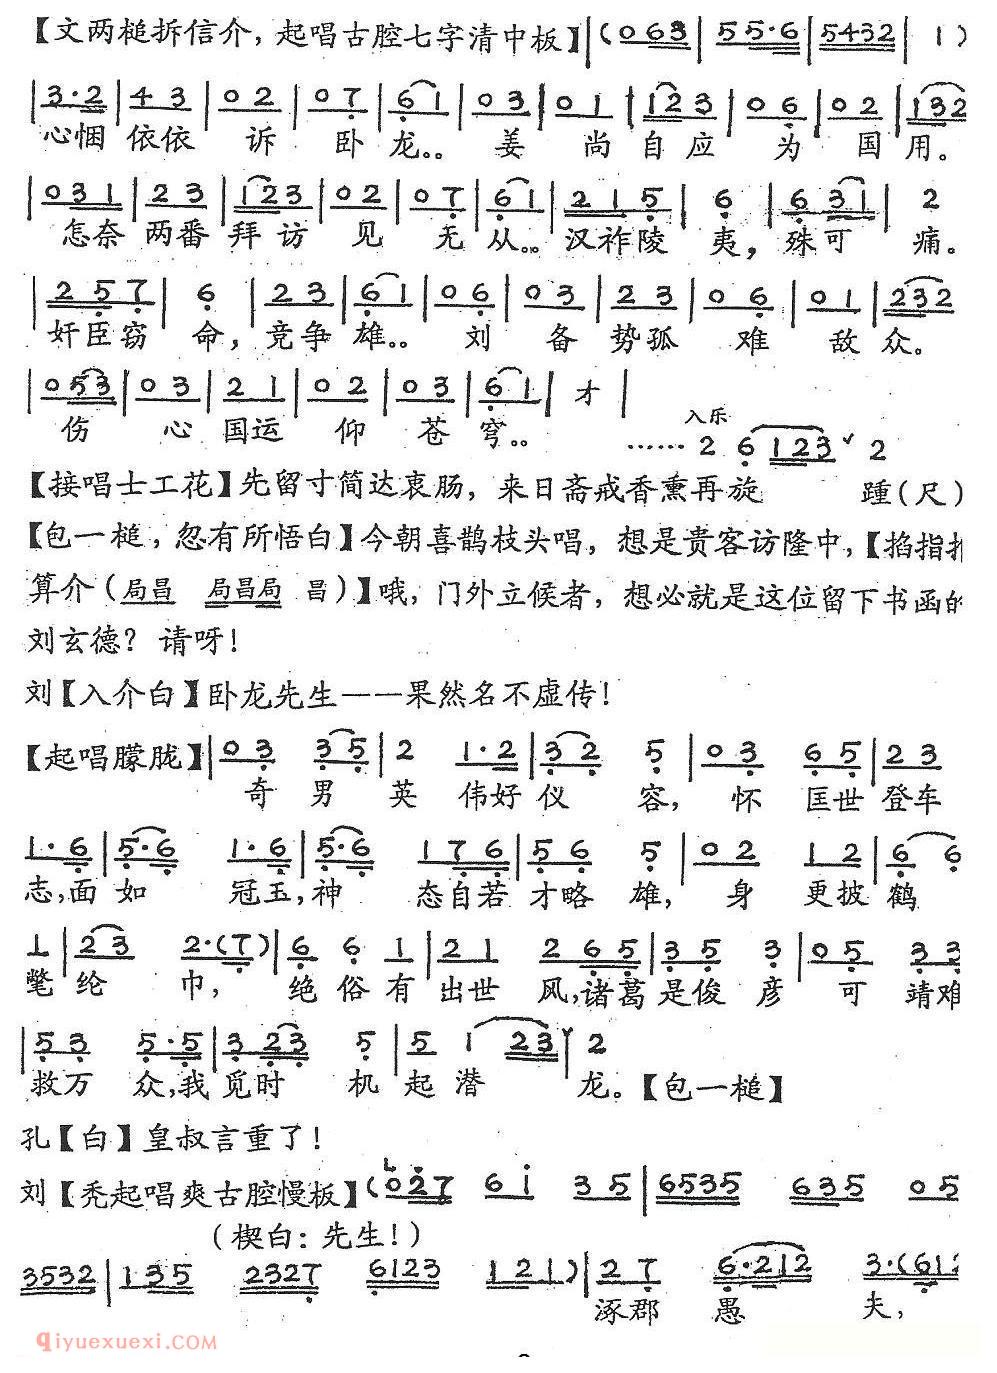 【文两槌拆信介，起唱古腔七字清中板】|(063|55·6|5432|1)
|3·2|43|02|07|61|03|01|123|06|02|132
心悃 依依 诉 卧 龙。。 姜 尚 自 应 为 国 用。
|031|23|123|02|07|61|215|6|631|2
怎奈 两番 拜 访 见 无 从。。 汉祚陵 夷，殊可 痛。
|257|6|23|61|06|03|23|06|01|232
奸臣窃 命，竞争 雄。。 刘 备 势孤 难 敌 众。
|053|03|21|02|03|61|才|
伤 心 国运 仰 苍 穹。。
入乐
……2 6 123 ˇ 2
【接唱士工花】先留寸简达衷肠，来日斋戒香熏再旋 踵(尺)
【包一槌，忽有所悟白】今朝喜鹊枝头唱，想是贵客访隆中，【掐指
算介(局昌 局昌局 昌)】哦，门外立候者，想必就是这位留下书函的
刘玄德？请呀！
刘【入介白】卧龙先生——果然名不虚传！
【起唱朦胧】|03 35|2 1·2|32 5|03 65|23
奇 男 英 伟好 仪 容，怀 匡世 登车
1·6|5·6 1·6|5·6 176|56 5|02 12|6 6
志，面 如 冠玉，神 态自若 才略 雄，身 更披 鹤
1|23 2·(7)|6 6 1|21 265|35 3|05 33
氅 纶 巾， 绝 俗 有 出世 风，诸葛 是俊 彦 可 靖难
|53 5·5|3 23 5|5 1 23 ˇ 2
救万 众，我 觅时 机 起 潜 龙。【包一槌】
孔【白】皇叔言重了！
刘【秃起唱爽古腔慢板】(027 61 35|6535 635 05
(楔白：先生！)
3532|135 2327 6123 121)|27 6·212 3·(61
涿郡 愚 夫，
qiyuexuexi.com